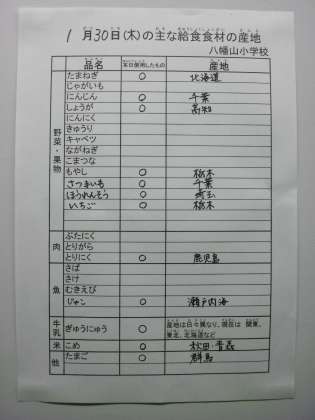 1月30日(木)の主な給食食材の産地
八幡山小学校
品名 本日使用したもの 産地
野菜・果物
たまねぎ ○ 北海道
じゃがいも
にんじん ○ 千葉
しょうが ○ 高知
にんにく
きゅうり
キャベツ
ながねぎ
こまつな
もやし ○ 栃木
さつまいも ○ 千葉
ほうれんそう ○ 埼玉
いちご ○ 栃木
肉
ぶたにく
とりがら
とりにく ○ 鹿児島
魚
さば
さけ
むきえび
じゃこ ○ 瀬戸内海
牛乳 ぎゅうにゅう ○ 産地は日々異なり、現在は 関東、
東北、北海道など
米 こめ ○ 秋田・青森
他 たまご ○ 群馬